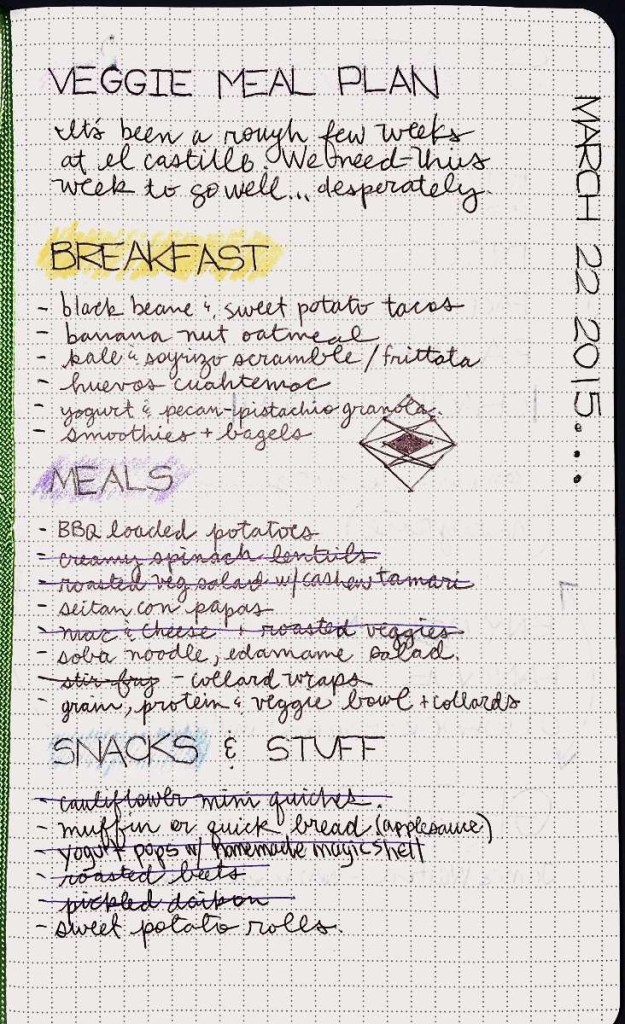 VEGGIE MEAL PLAN
It's been a rough few weeks
at el castillo. We need this
week to go well... desperately.
MARCH 22 2015....
BREAKFAST
- black beans & sweet potato tacos
- banana nut oatmeal
- kale & soyrizo scramble / frittata
- huevos cuahtemoc
- yogurt & pecan-pistachio granola.
- smoothies + bagels
MEALS
- BBQ loaded potatoes
- creamy spinach lentils
- roasted veg salad w/ cashew tamari
- seitan con papas
- mac & cheese + roasted veggies
- soba noodle, edamame salad.
- stir-fry - collard wraps
- grain, protein & veggie bowl + collards
SNACKS & STUFF
- cauliflower mini quiches.
- muffin or quick bread (applesauce)
- yogurt pops w/ homemade magic shell
- roasted beets
- pickled daikon
- sweet potato rolls.